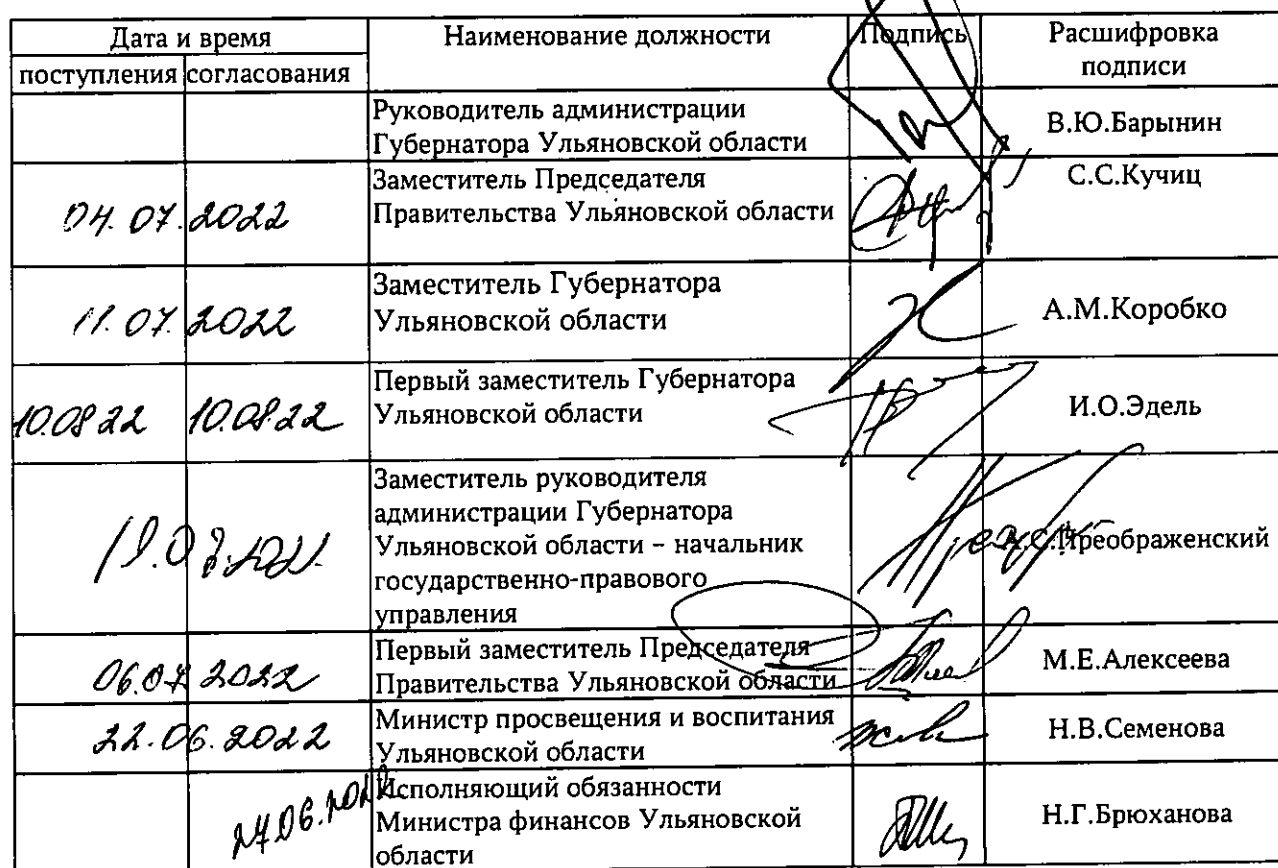 Дата и время
Наименование должности
Подпись
Расшифровка
подписи
поступления
согласования
Руководитель администрации
Губернатора Ульяновской области
В.Ю.Барынин
04.07.2022
Заместитель Председателя
Правительства Ульяновской области
С.С.Кучиц
11.07.2022
Заместитель Губернатора
Ульяновской области
А.М.Коробко
10.08.22
10.08.22
Первый заместитель Губернатора
Ульяновской области
И.О.Эдель
Заместитель руководителя
администрации Губернатора
Ульяновской области – начальник
государственно-правового
управления
А.С.Преображенский
06.07.2022
Первый заместитель Председателя
Правительства Ульяновской области
М.Е.Алексеева
22.06.2022
Министр просвещения и воспитания
Ульяновской области
Н.В.Семенова
27.06.2022
Исполняющий обязанности
Министра финансов Ульяновской
области
Н.Г.Брюханова